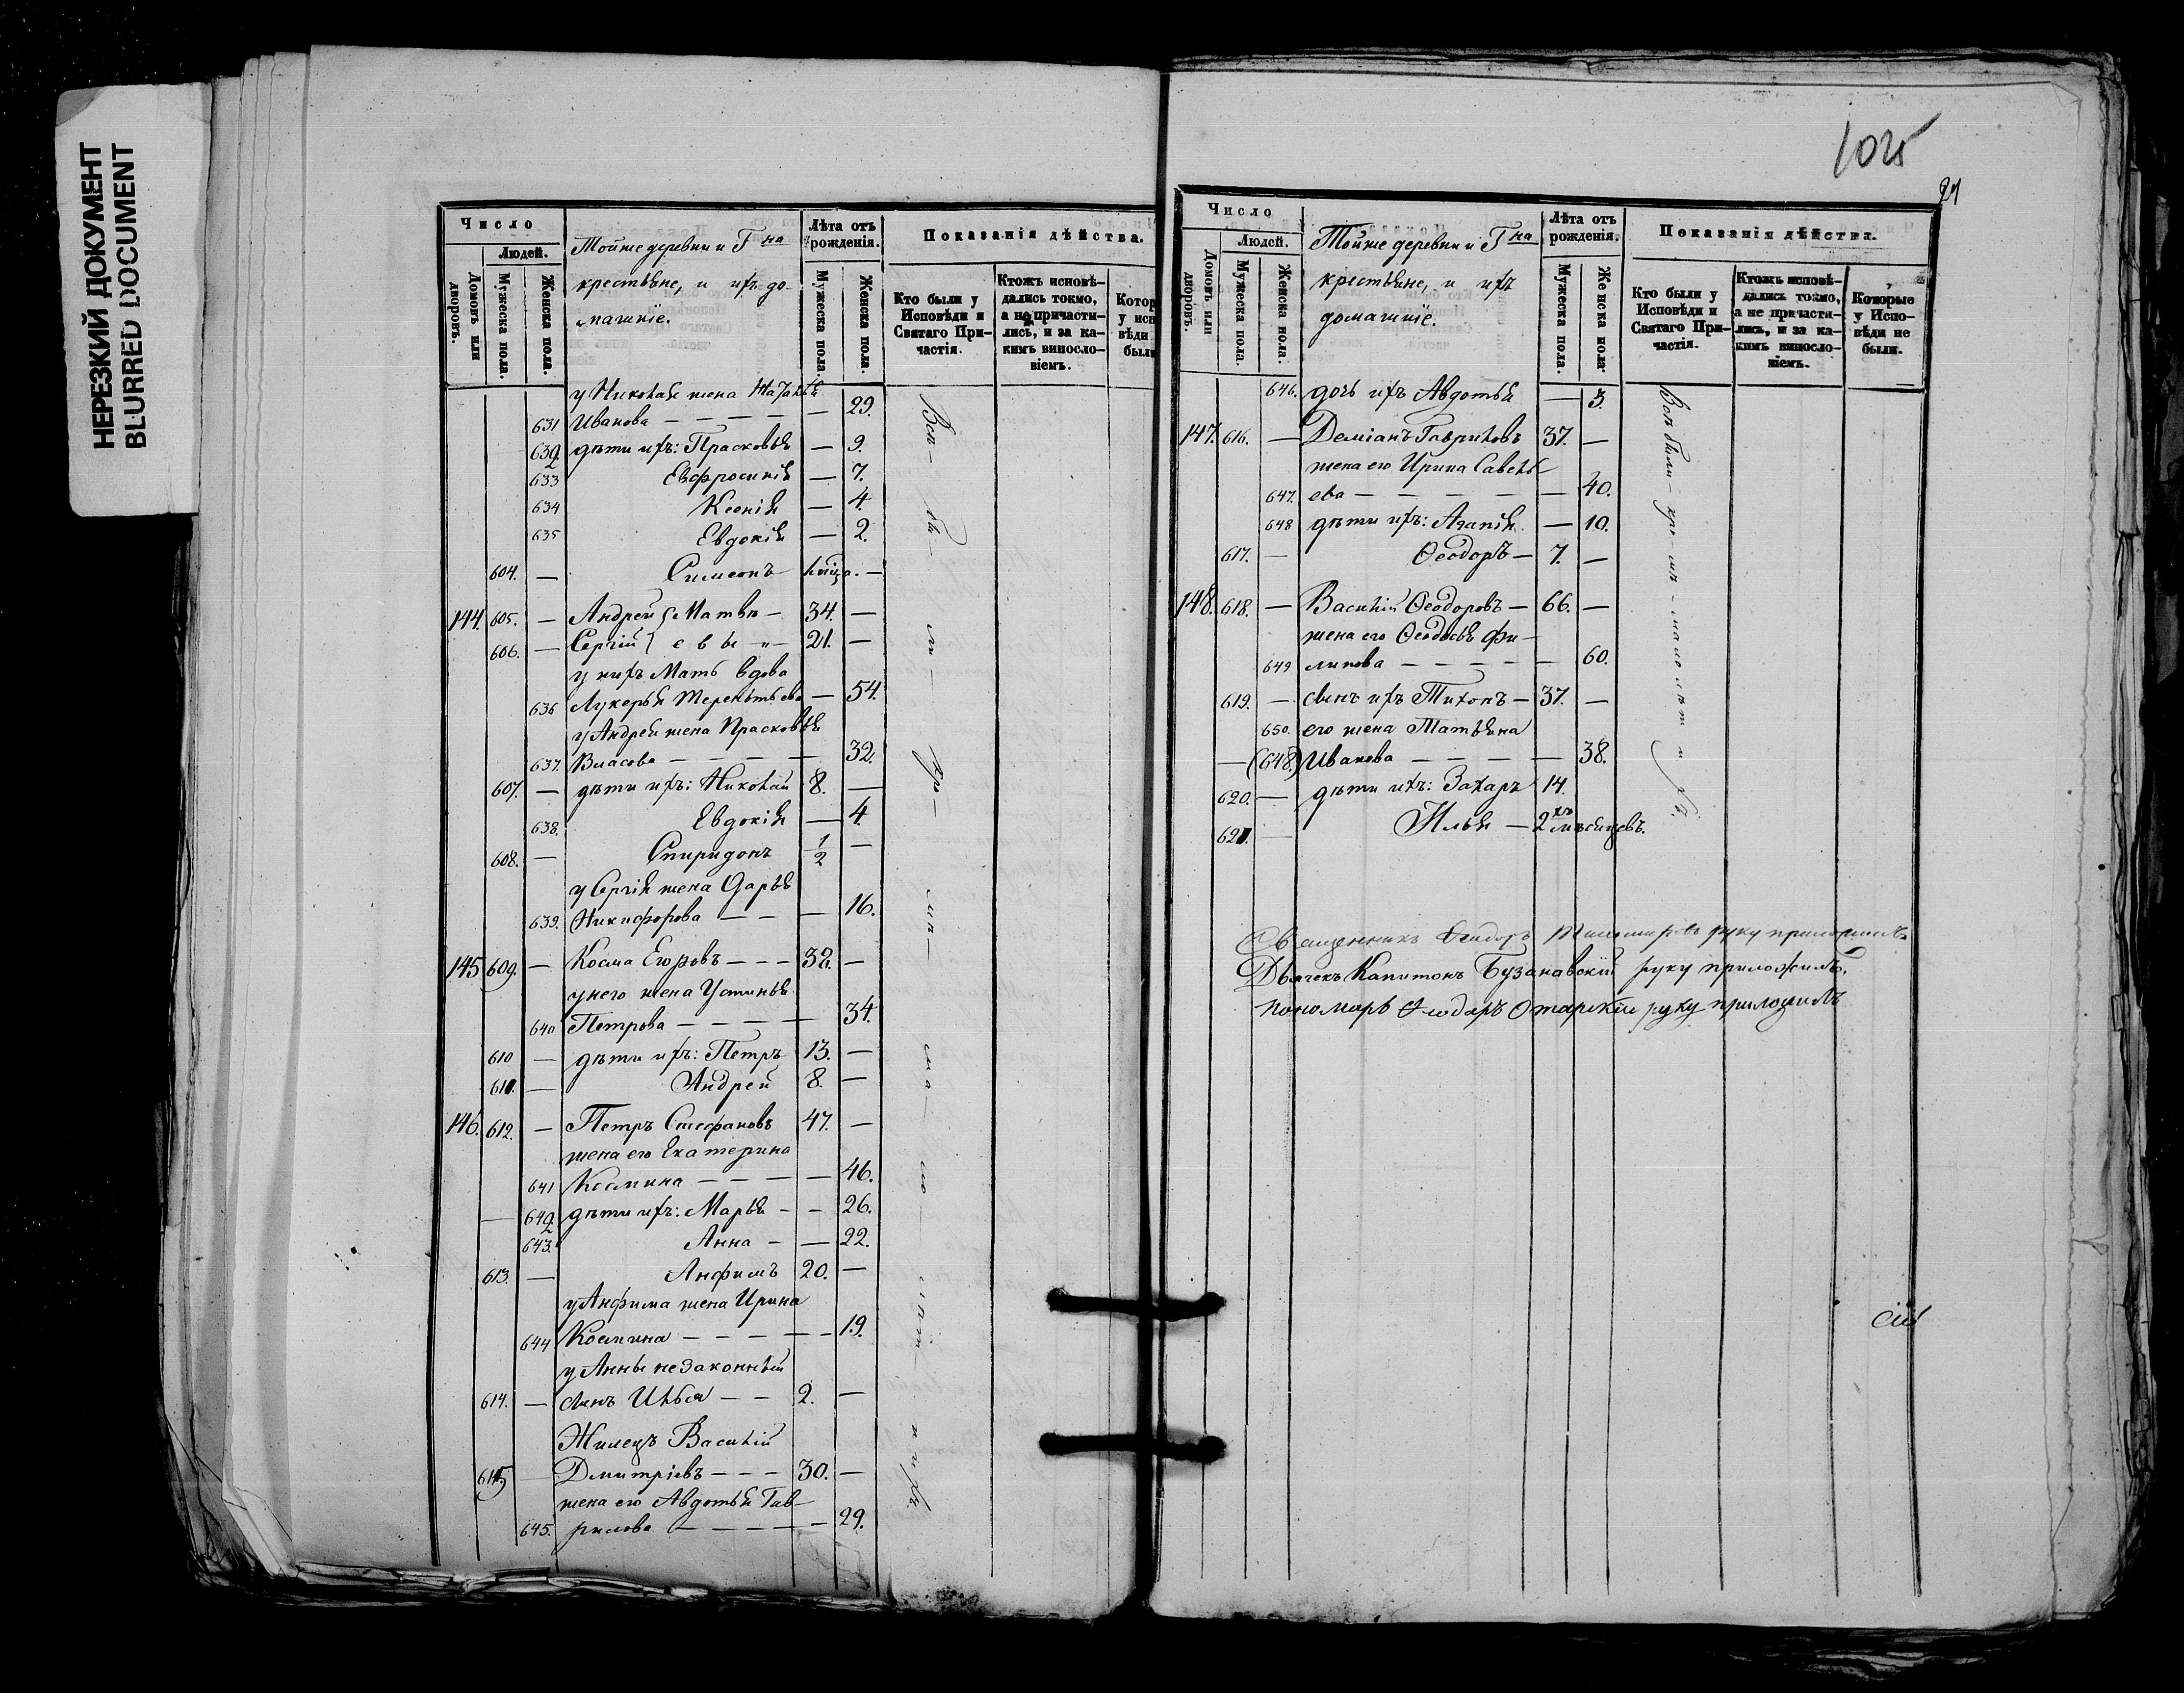 НЕРЕЗКИЙ ДОКУМЕНТ
BLURRED DOCUMENT
Число
Людей.
Домовъ или дворовъ.
Мужеска пола.
Женска пола.
Тойже деревни и Г на
крестьяне, и ихъ до-
машніе.
Лѣта отъ рожденія.
Мужеска пола.
Женска пола.
Показанія дѣйства.
Кто были у Исповѣди и Святаго При-частія.
Ктожъ исповѣ-дались токмо, а не причасти-лись, и за ка-кимъ винносло-віемъ.
Котор
у исп
вѣди
были
у Николая жена Наталья
631 Иванова — — — — — 29.
632 дѣти ихъ: Прасковья — 9.
633 Евфросинія — 7.
634 Ксенія — 4.
635 Евдокія — 2.
604. — Симеонъ —
144. 605. — Андрей Матвѣ — 34. —
606. — Сергій евы — 21. —
у нихъ Мать вдова
636 Лукерья Терентьева — 54.
у Андрея жена Прасковья
637. Власова — — — — 32.
607. — дѣти ихъ: Николай 8. —
638. Евдокія — 4.
608. — Спиридонъ 1/2 —
у Сергія жена Дарья
639. Никифорова — — — 16.
145 609. — Косма Егоровъ — — — 38. —
у него жена Устинья
640 Петрова — — — — 34.
610 — дѣти ихъ: Петръ 13. —
611. — Андрей 8. —
146. 612. — Петръ Стефановъ 47. —
жена его Екатерина
641 Космина — — — — 46.
642 дѣти ихъ: Марья — — 26.
643. Анна — — 22.
613. — Анфимъ 20. —
у Анфима жена Ирина
644 Космина — — — — — 19.
у Анны незаконный
614. — сынъ Илья — — 2. —
Жилецъ Василій
615 — Дмитріевъ — — — 30. —
жена его Авдотья Гав-
645. рилова — — — — — 29.
Всѣ — бы — ли — кро — мѣ — ма — ло — лѣт — нихъ
1025
21
Число
Людей.
Домовъ или дворовъ.
Мужеска пола.
Женска пола.
Тойже деревни и Г на
крестьяне, и ихъ
домашніе.
Лѣта отъ рожденія.
Мужеска пола.
Женска пола.
Показанія дѣйства.
Кто были у Исповѣди и Святаго При-частія.
Ктожъ исповѣ-дались токмо, а не причасти-лись, и за ка-кимъ винносло-віемъ.
Которые у Испо-вѣди не были.
646. дочь ихъ Авдотья — 3.
147. 616. — Деміанъ Гавриловъ 37. —
жена его Ирина Савель
647. ева — — — — — 40.
648 дѣти ихъ: Агапія — 10.
617. — Ѳеодоръ — 7. —
148. 618. — Василій Ѳеодоровъ — 66. —
жена его Ѳеодосья Фи-
649 липова — — — — — 60.
619. — сынъ ихъ Тихонъ — 37. —
650. его жена Татьяна
— (648.) Иванова — — — — 38.
620. — дѣти ихъ: Захаръ 14.
621. — Илья — 2хъ мѣсяцевъ.
Всѣ были — кро — мѣ — малолѣтнихъ
Священникъ Ѳеодоръ руку приложилъ
Дьячекъ Капитонъ Бузанавскій руку приложилъ.
пономарь Ѳеодоръ Отарскій руку приложилъ